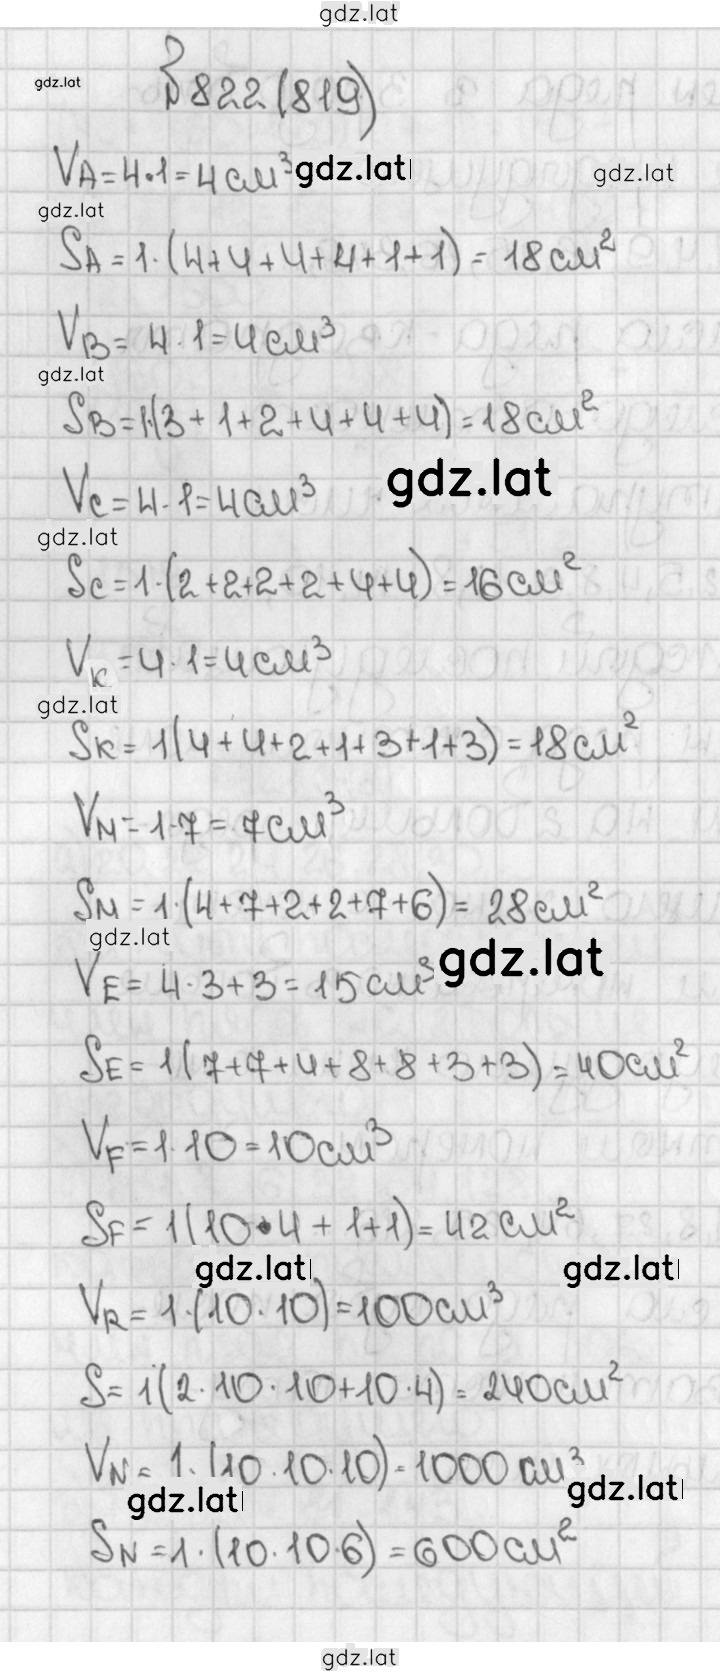 gdz.lat
gdz.lat
№822(819)
V_A=4·1=4см³ gdz.lat gdz.lat
gdz.lat
S_A=1·(4+4+4+4+1+1)=18см²
V_B=4·1=4см³
gdz.lat
S_B=1·(3+1+2+4+4+4)=18см²
gdz.lat
V_C=4·1=4см³
gdz.lat
S_C=1·(2+2+2+2+4+4)=16см²
V_K=4·1=4см³
gdz.lat
S_K=1(4+4+2+1+3+1+3)=18см²
V_M=1·7=7см³
S_M=1·(4+7+2+2+7+6)=28см²
gdz.lat
V_E=4·3+3=15см³ gdz.lat
S_E=1(7+7+4+8+8+3+3)=40см²
V_F=1·10=10см³
S_F=1(10·4+1+1)=42см²
gdz.lat gdz.lat
V_R=1·(10·10)=100см³
S=1(2·10·10+10·4)=240см²
V_N=1·(10·10·10)=1000см³
gdz.lat gdz.lat
S_N=1·(10·10·6)=600см²
gdz.lat